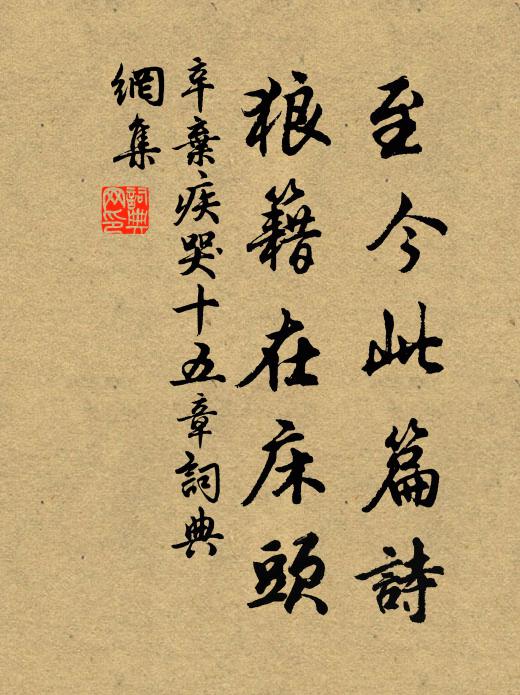 至今此篇詩
狼籍在床頭
辛棄疾哭十五章詞典
網集
詞典
网印